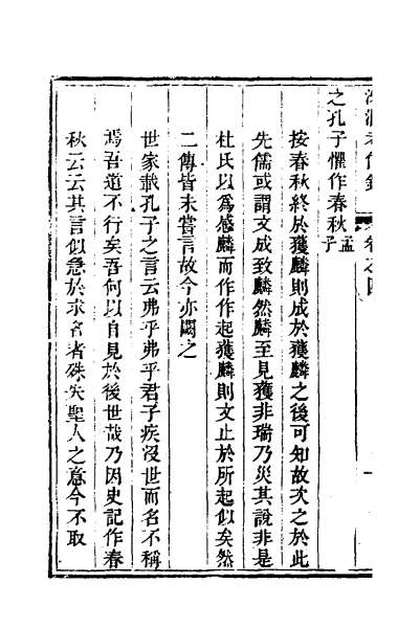 洙泗考信錄 卷之四
之孔子懼作春秋孟子
按春秋終於獲麟則成於獲麟之後可知故次之於此
先儒或謂文成致麟然麟至見獲非瑞乃災其說非是
杜氏以爲感麟而作作起獲麟則文止於所起似矣然
二傳皆未嘗言故今亦闕之
世家載孔子之言云弗乎弗乎君子疾沒世而名不稱
焉吾道不行矣吾何以自見於後世哉乃因史記作春
秋云云其言似急於求名者殊失聖人之意今不取